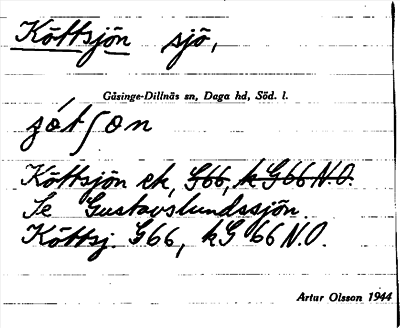 Köttsjön sjö,
Gåsinge-Dillnäs sn, Daga hd, Söd. l.
Köttsjön ek, G66, kG66N.O.
Se Gustavslundssjön.
Köttsj. G66, kG 66 N.O.
Artur Olsson 1944